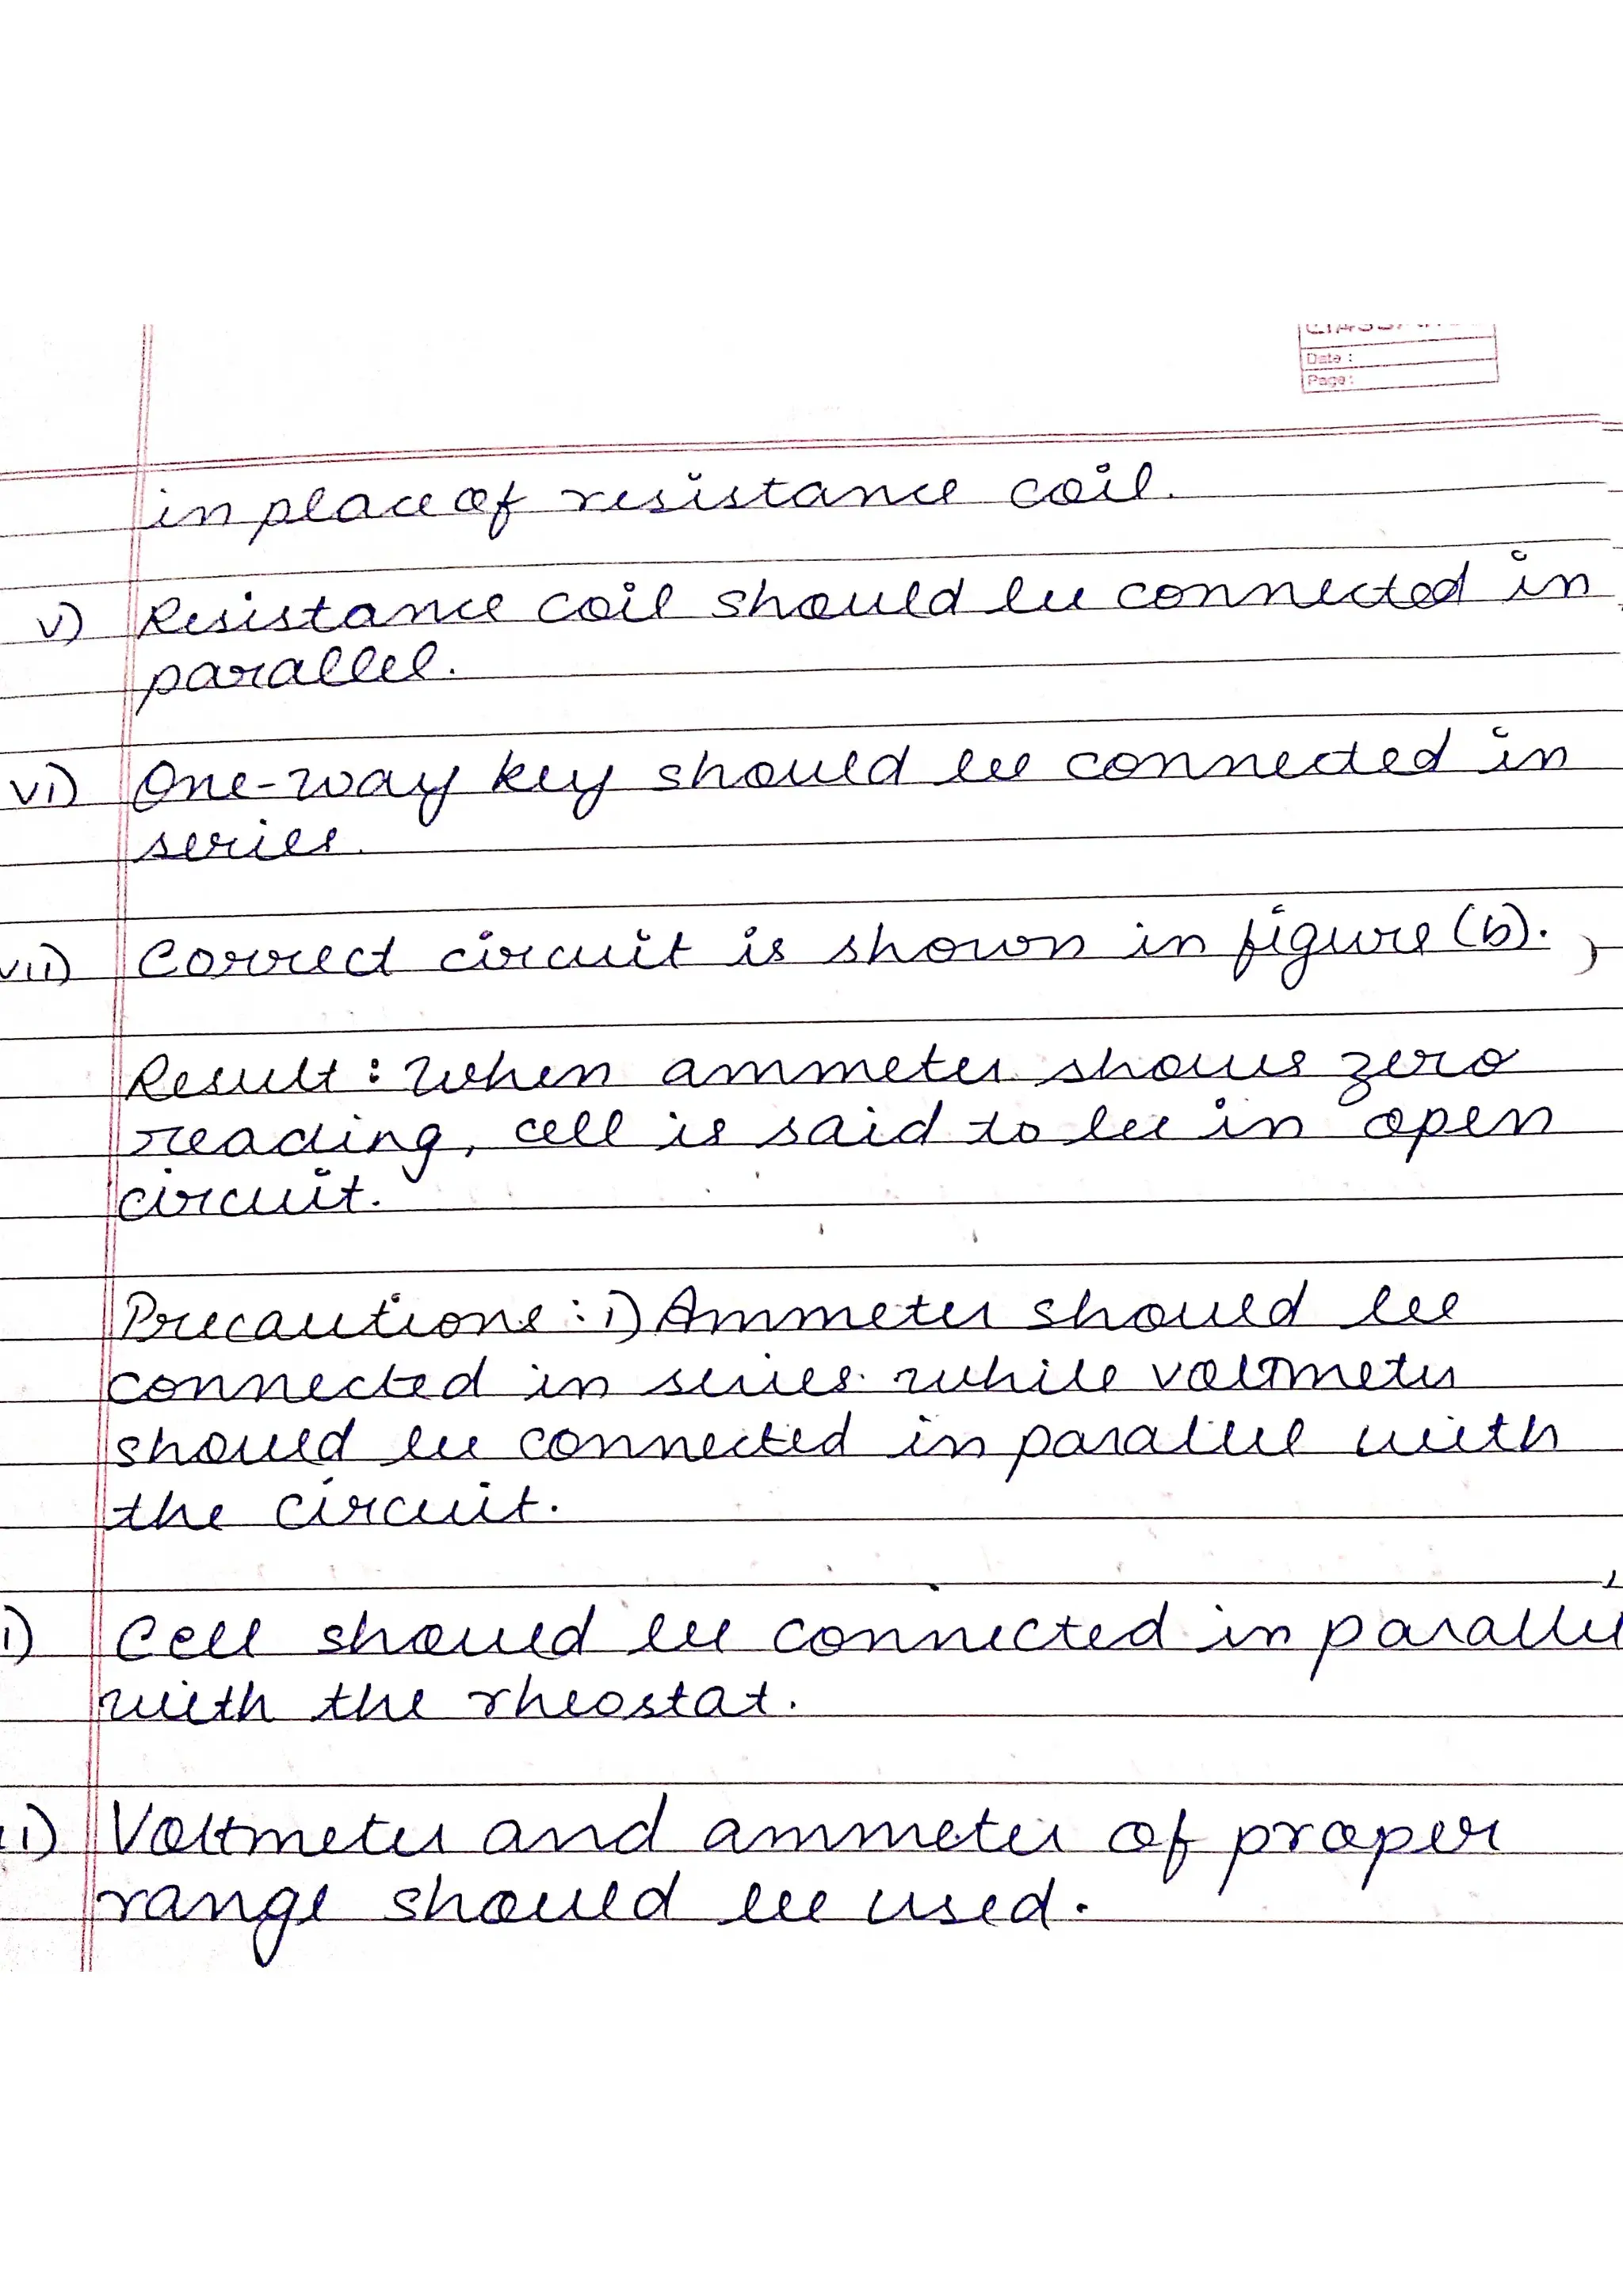 Date :
Page:
in place of resistance coil.
v) Resistance coil should be connected in
parallel.
vi) One-way key should be connected in
series.
vii) Correct circuit is shown in figure (b).
Result : When ammeter shows zero
reading, cell is said to be in open
circuit.
Precautions : i) Ammeter should be
connected in series while voltmeter
should be connected in parallel with
the circuit.
i) Cell should be connected in parallel
with the rheostat.
ii) Voltmeter and ammeter of proper
range should be used.